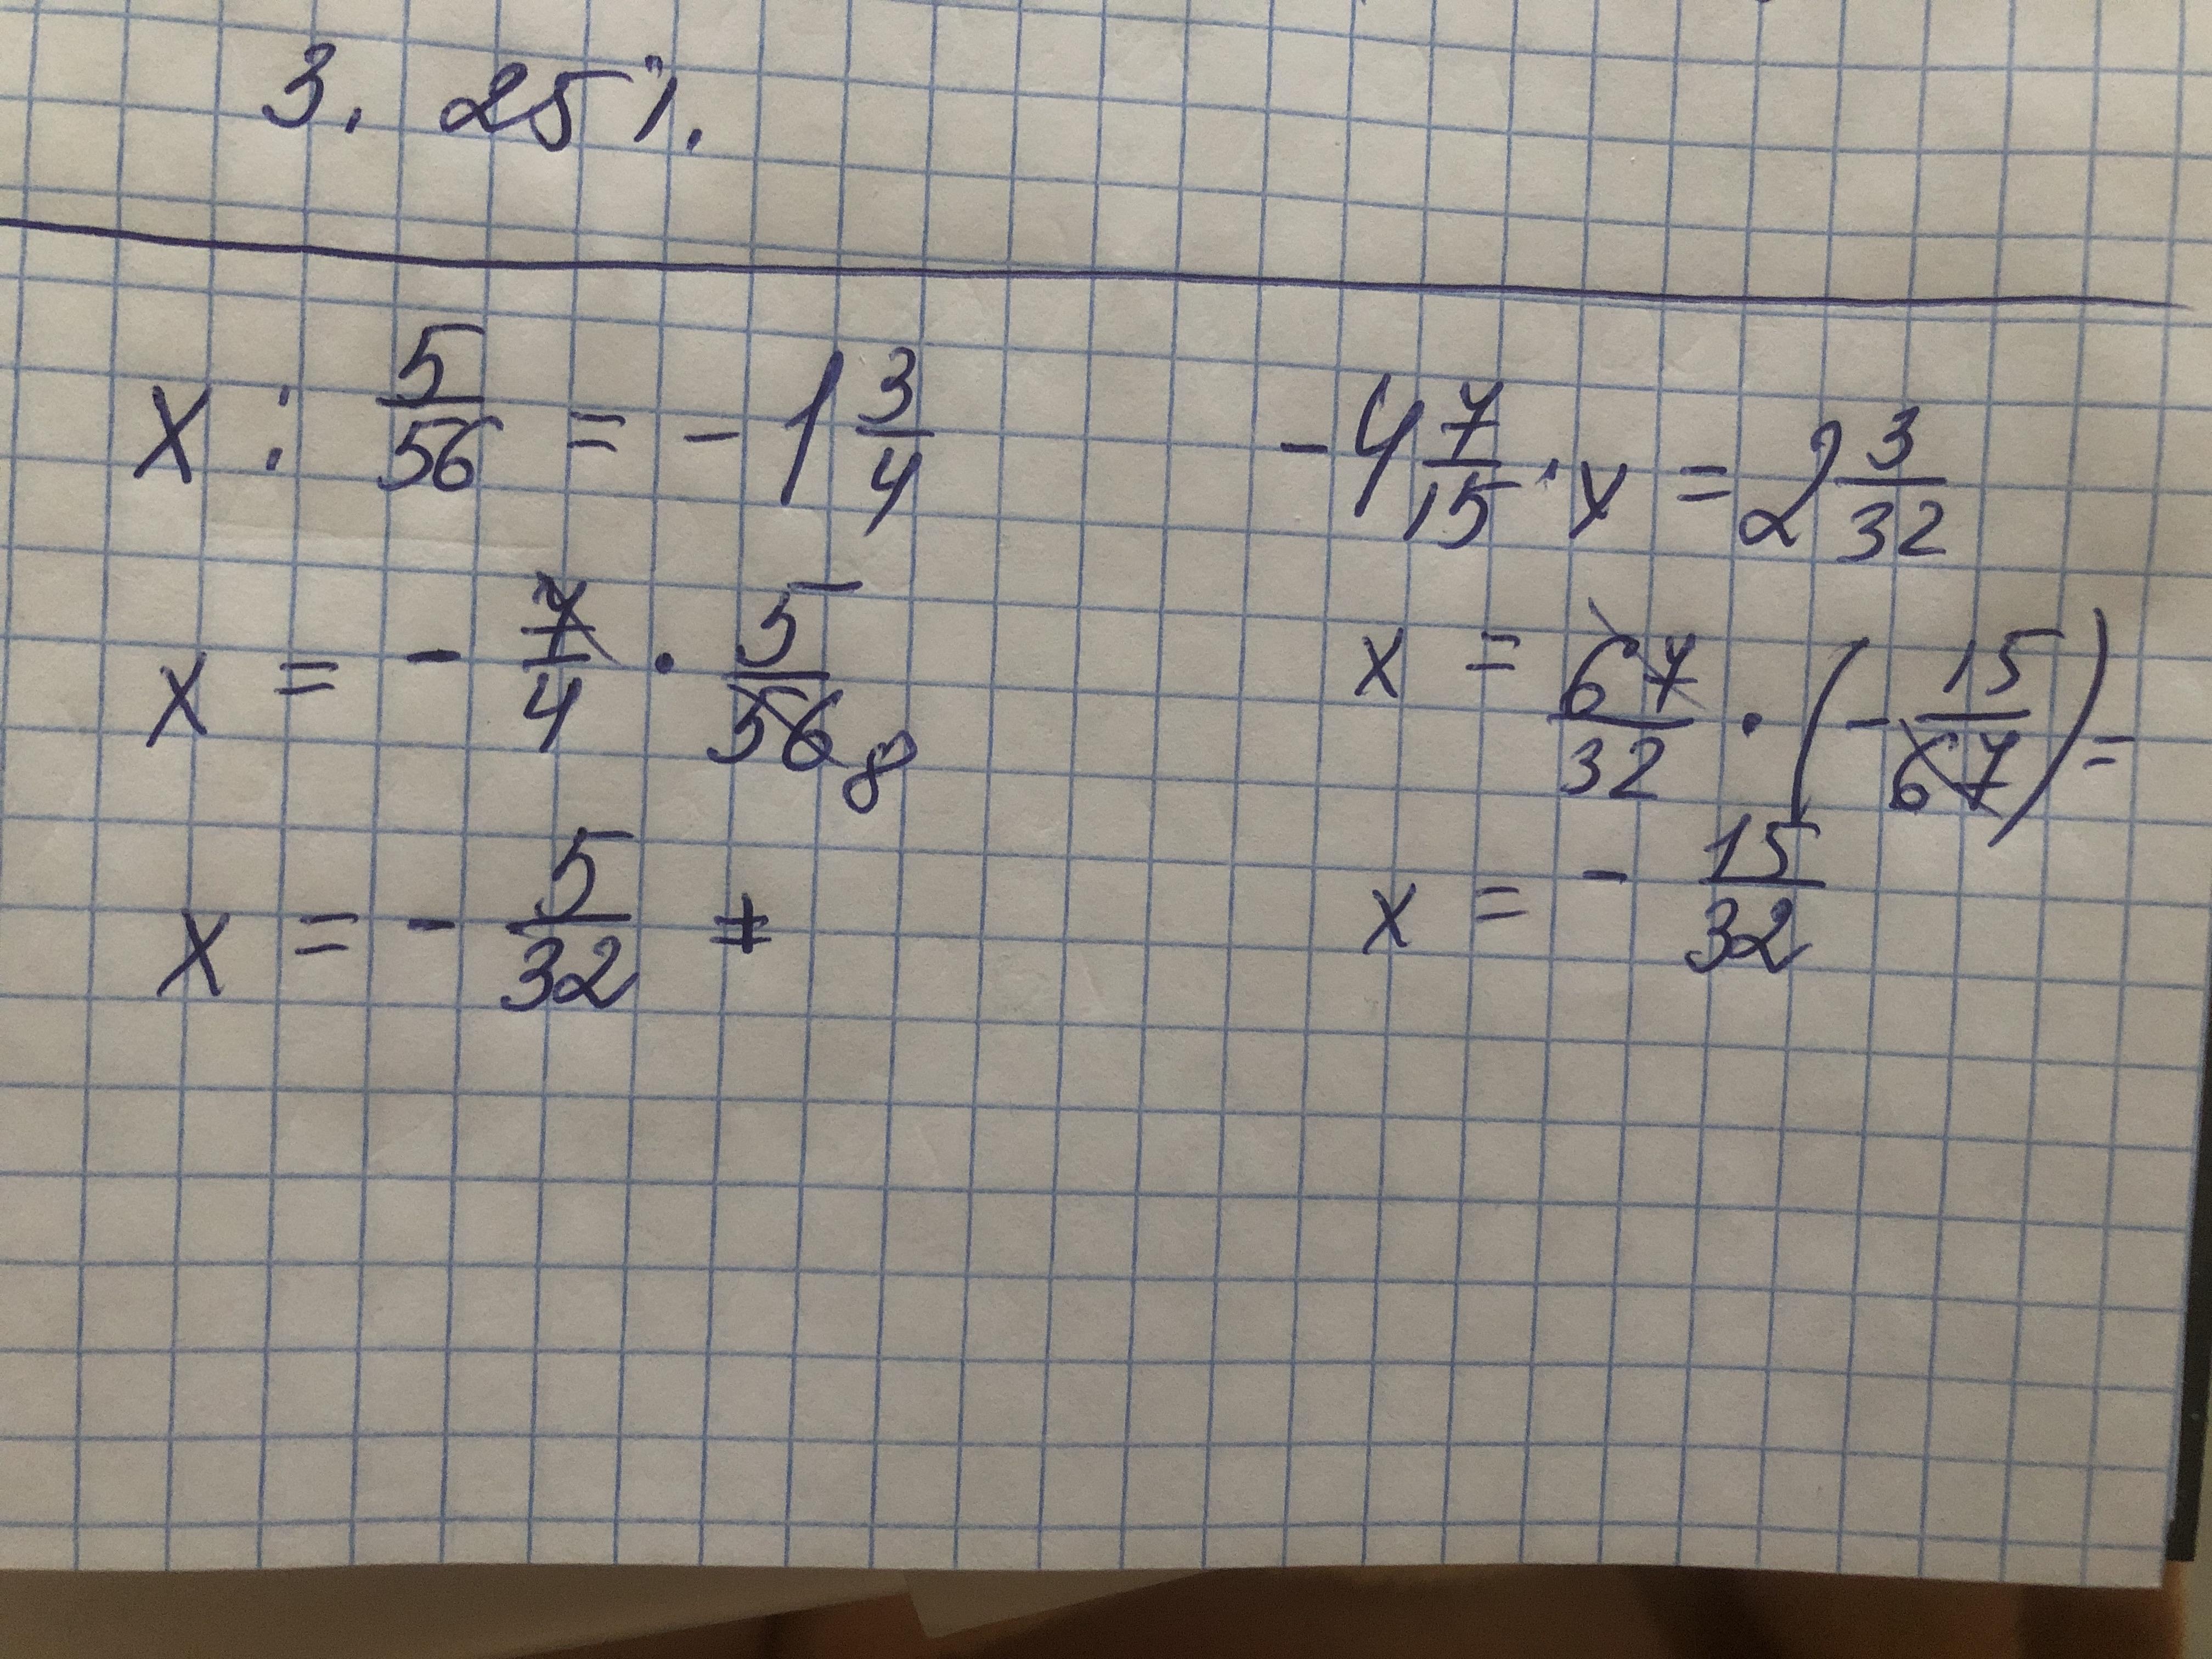 3. 25%.
x : 5/56 = - 1 3/4
x = - 7/4 · 5/56 8
x = - 5/32 +
- 4 7/15 · x = 2 3/32
x = 67/32 · (- 15/67) =
x = - 15/32